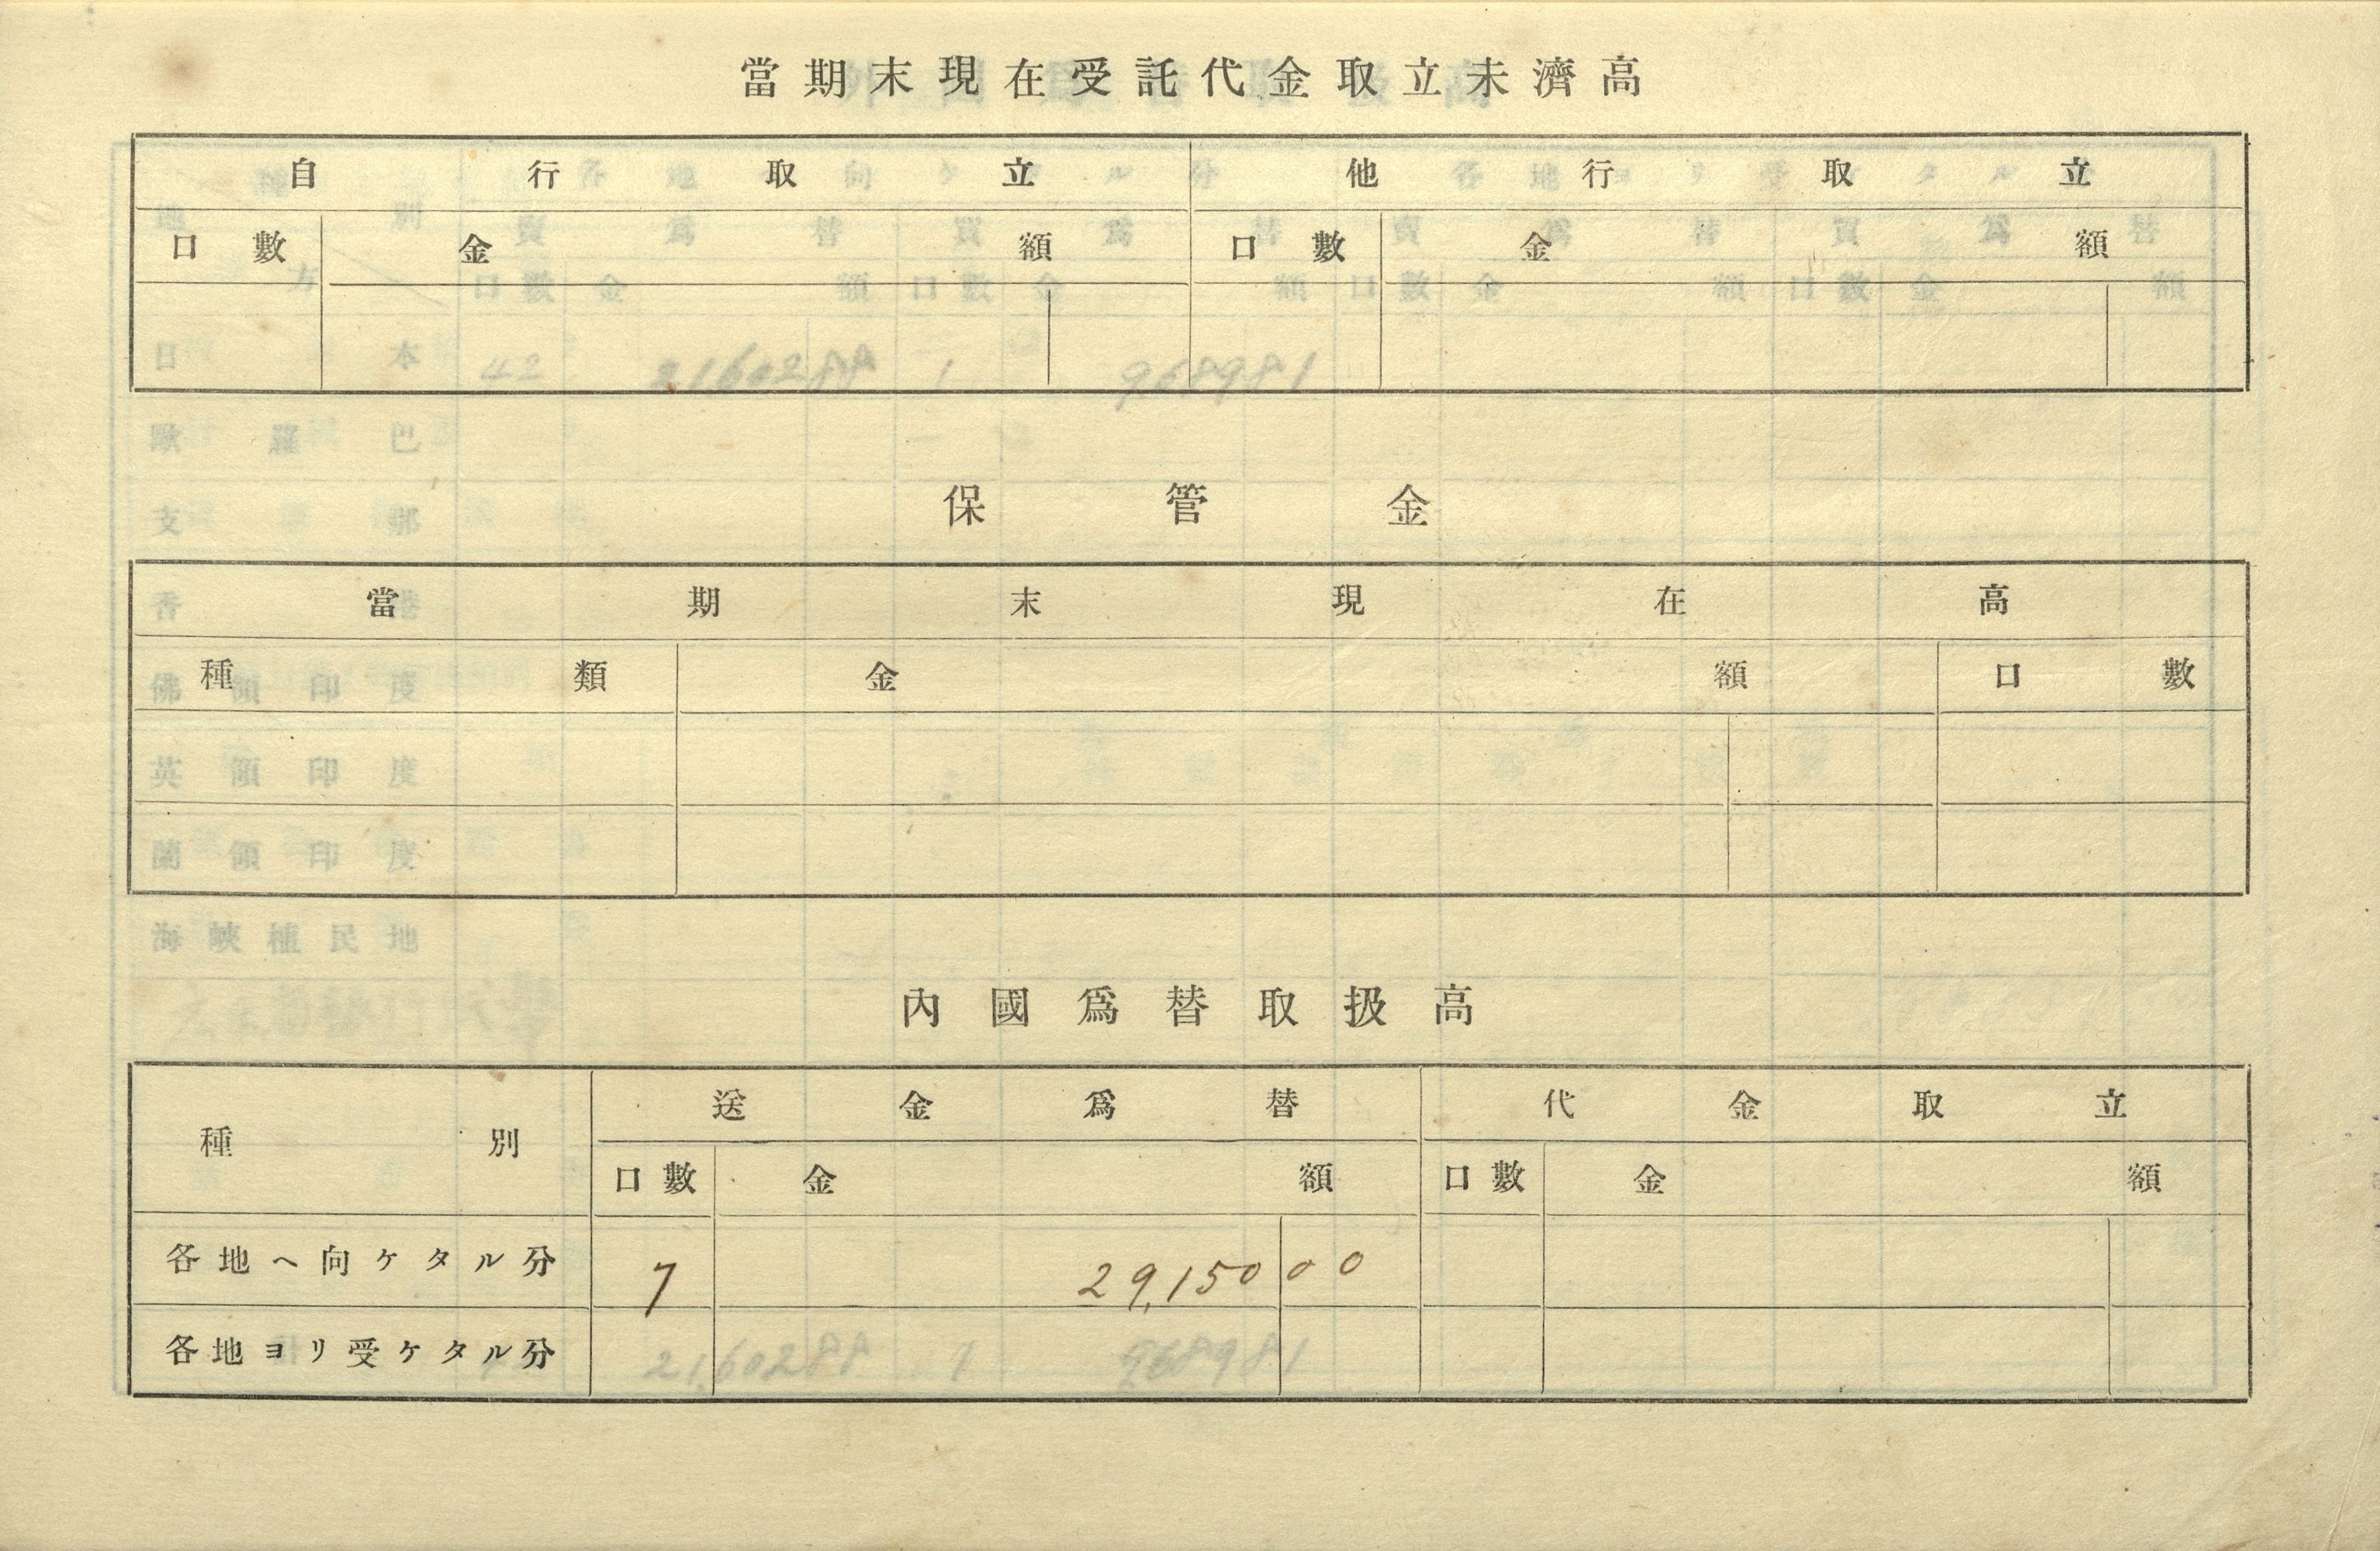 當期末現在受託代金取立未濟高
自行取立 他行取立
口數 金額 口數 金額
保管金
當期末現在高
種類 金額 口數
內國爲替取扱高
種別 送金爲替 代金取立
口數 金額 口數 金額
各地ヘ向ケタル分 7 29,150 00
各地ヨリ受ケタル分